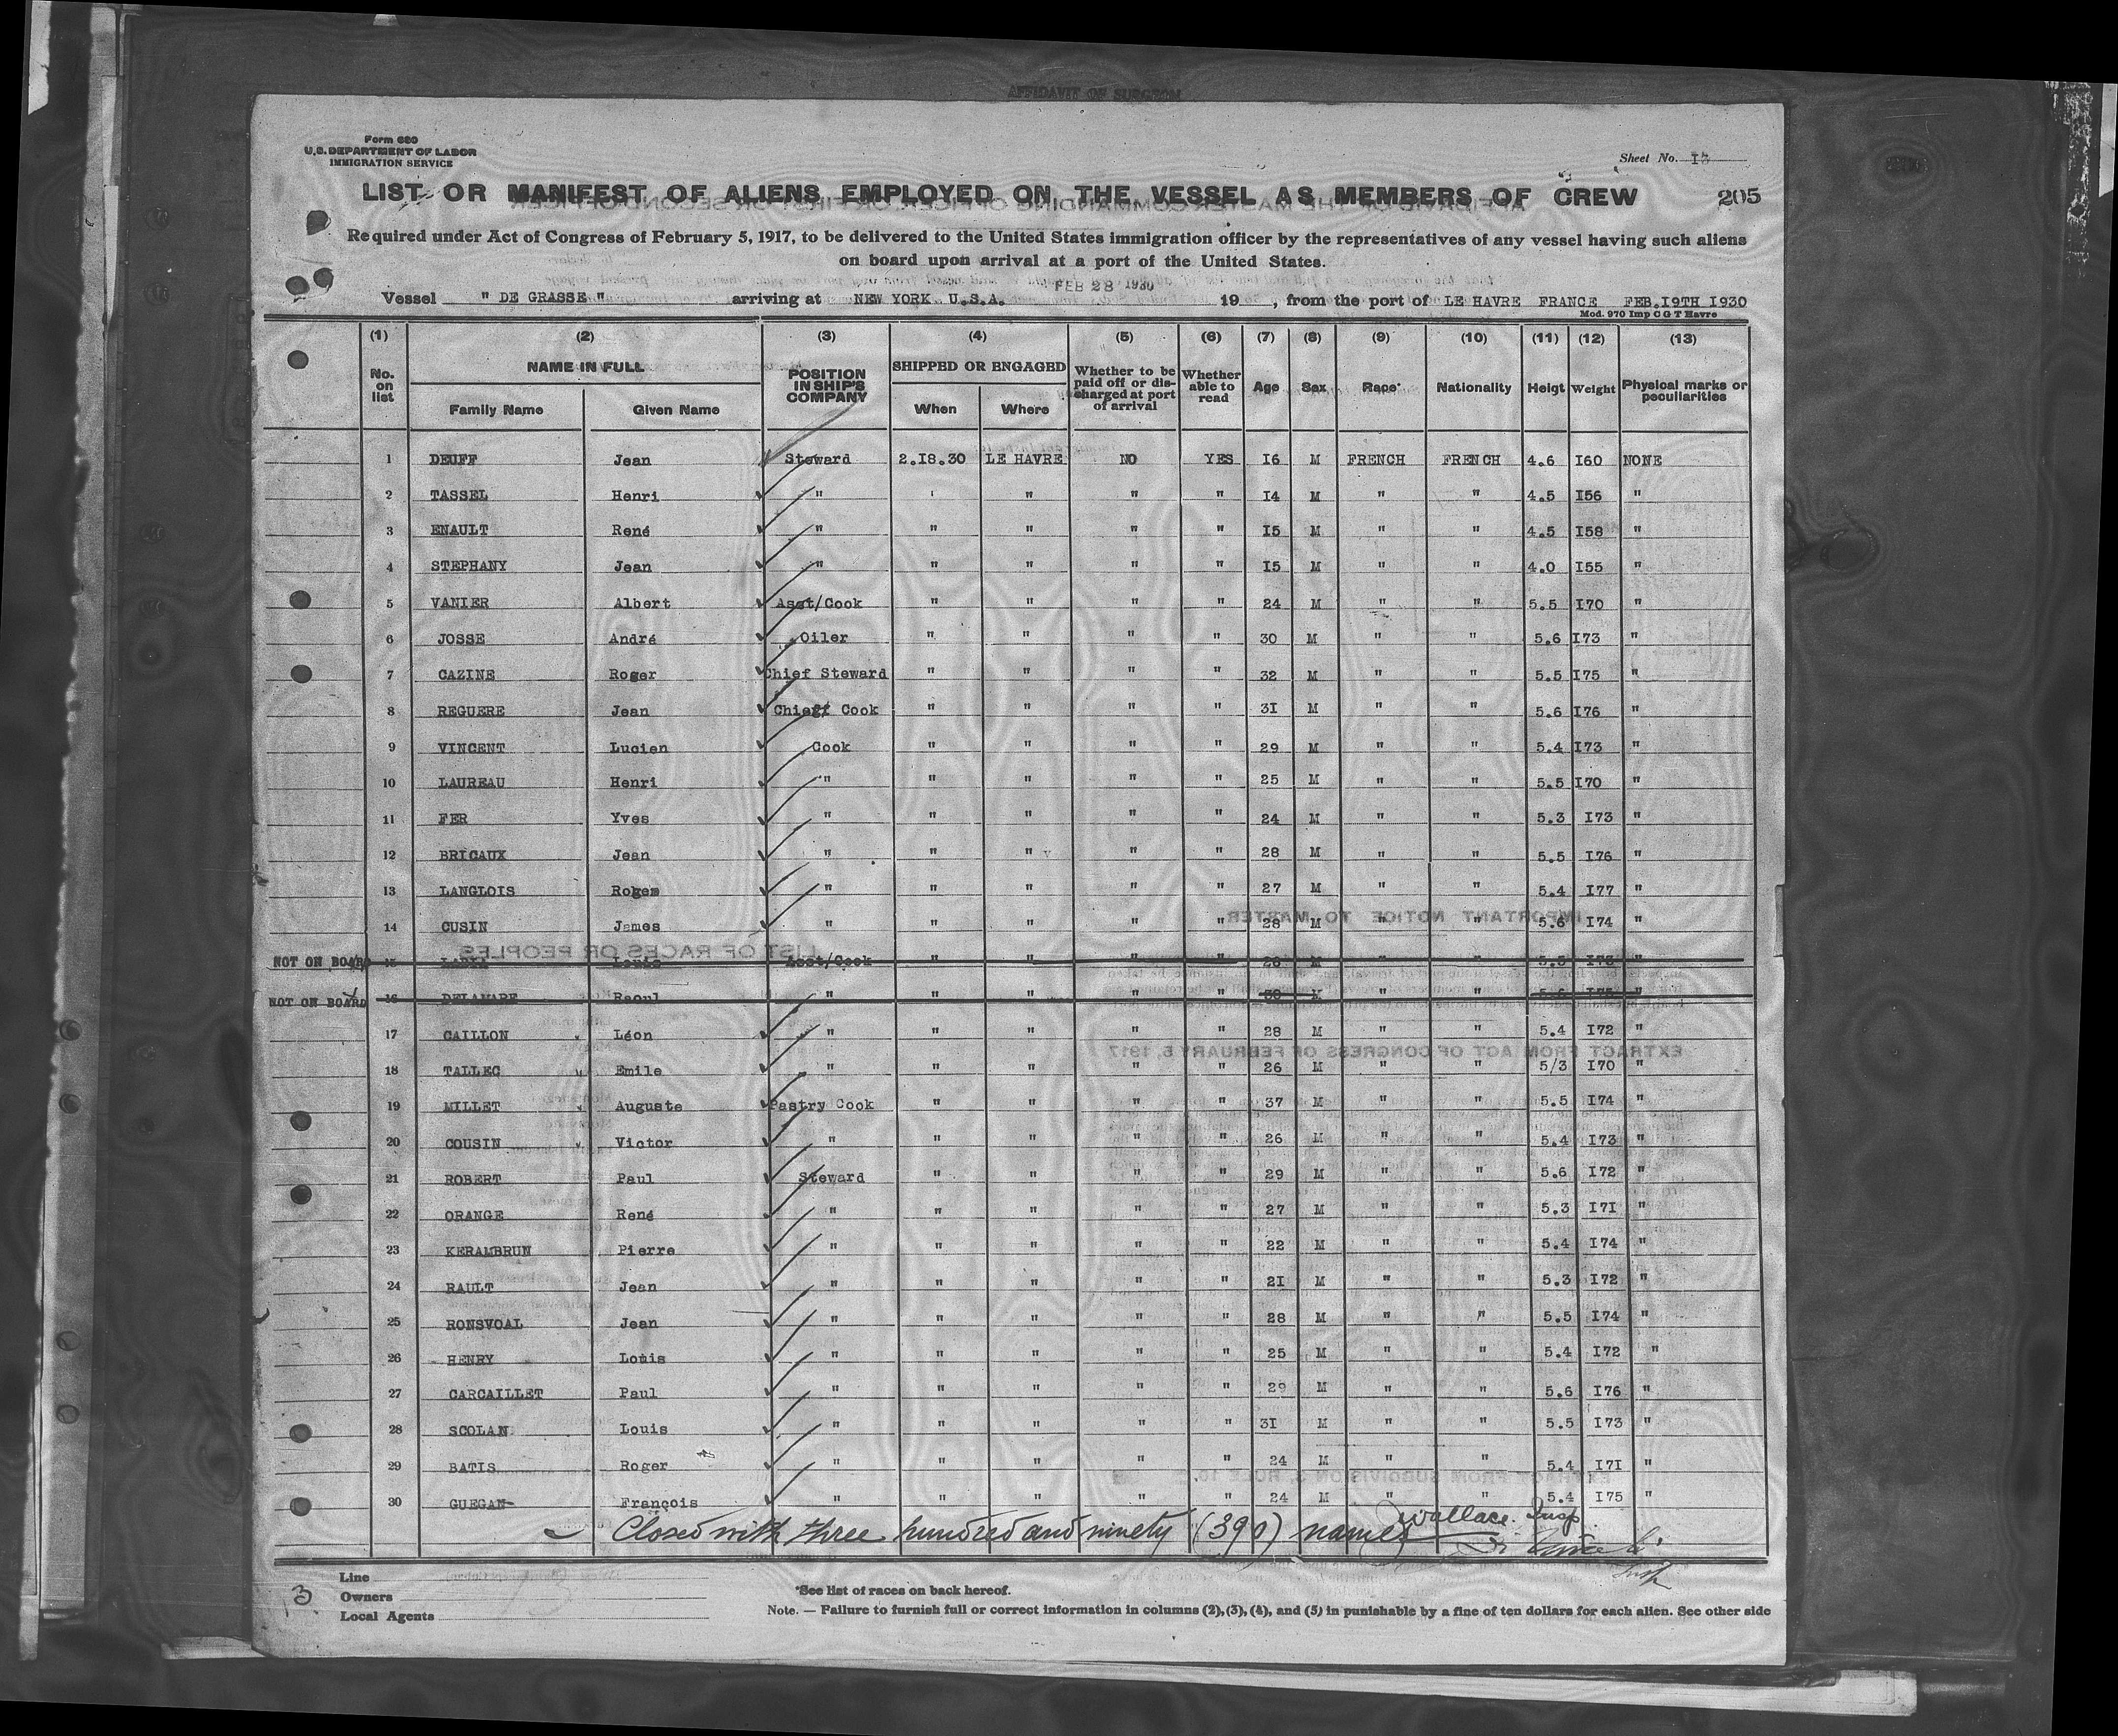 AFFIDAVIT OF SURGEON
Form 680
U.S. DEPARTMENT OF LABOR
IMMIGRATION SERVICE
Sheet No. I3
LIST OR MANIFEST OF ALIENS EMPLOYED ON THE VESSEL AS MEMBERS OF CREW 205
Required under Act of Congress of February 5, 1917, to be delivered to the United States immigration officer by the representatives of any vessel having such aliens
on board upon arrival at a port of the United States.
FEB 28 1930
Vessel " DE GRASSE " arriving at NEW YORK U.S.A. 19 , from the port of LE HAVRE FRANCE FEB.I9TH I930
Mod. 970 Imp C G T Havre
(1) (2) (3) (4) (5) (6) (7) (8) (9) (10) (11) (12) (13)
No. on list NAME IN FULL Family Name Given Name POSITION IN SHIP'S COMPANY SHIPPED OR ENGAGED When Where Whether to be paid off or discharged at port of arrival Whether able to read Age Sex Race* Nationality Heigt Weight Physical marks or peculiarities
1 DEUFF Jean Steward 2.I8.30 LE HAVRE NO YES I6 M FRENCH FRENCH 4.6 I60 NONE
2 TASSEL Henri " ' " " " I4 M " " 4.5 I56 "
3 ENAULT René " " " " " I5 M " " 4.5 I58 "
4 STEPHANY Jean " " " " " I5 M " " 4.0 I55 "
5 VANIER Albert Asst/Cook " " " " 24 M " " 5.5 I70 "
6 JOSSE André Oiler " " " " 30 M " " 5.6 I73 "
7 CAZINE Roger Chief Steward " " " " 32 M " " 5.5 I75 "
8 REGUERE Jean Chieff Cook " " " " 3I M " " 5.6 I76 "
9 VINCENT Lucien Cook " " " " 29 M " " 5.4 I73 "
10 LAUREAU Henri " " " " " 25 M " " 5.5 I70 "
11 FER Yves " " " " " 24 M " " 5.3 I73 "
12 BRICAUX Jean " " " " " 28 M " " 5.5 I76 "
13 LANGLOIS Roger " " " " " 27 M " " 5.4 I77 "
14 CUSIN James " " " " " 28 M " " 5.6 I74 "
NOT ON BOARD 15 Louis Asst/Cook " " " " 26 M " " 5.5 I73 "
NOT ON BOARD 16 DELAMARE Raoul " " " " " 30 M " " 5.6 I75 "
17 CAILLON Léon " " " " " 28 M " " 5.4 I72 "
18 TALLEC Emile " " " " " 26 M " " 5/3 I70 "
19 MILLET Auguste Pastry Cook " " " " 37 M " " 5.5 I74 "
20 COUSIN Victor " " " " " 26 M " " 5.4 I73 "
21 ROBERT Paul Steward " " " " 29 M " " 5.6 I72 "
22 ORANGE René " " " " " 27 M " " 5.3 I7I "
23 KERAMBRUN Pierre " " " " " 22 M " " 5.4 I74 "
24 RAULT Jean " " " " " 2I M " " 5.3 I72 "
25 RONSVOAL Jean " " " " " 28 M " " 5.5 I74 "
26 HENRY Louis " " " " " 25 M " " 5.4 I72 "
27 CARCAILLET Paul " " " " " 29 M " " 5.6 I76 "
28 SCOLAN Louis " " " " " 3I M " " 5.5 I73 "
29 BATIS Roger " " " " " 24 M " " 5.4 I7I "
30 GUEGAN François " " " " " 24 M " " 5.4 I75 "
Closed with three hundred and ninety (390) names Wallace. Insp
Insp
3
Line
Owners
Local Agents
*See list of races on back hereof.
Note. — Failure to furnish full or correct information in columns (2), (3), (4), and (5) in punishable by a fine of ten dollars for each alien. See other side